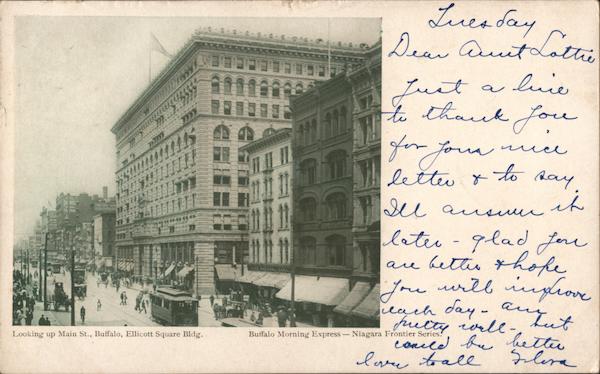 Tuesday
Dear Aunt Lottie
Just a line
to thank you
for your nice
letter & to say
I'll answer it
later - glad you
are better & hope
you will improve
each day - am
pretty well - but
could be better
love to all Flora
Looking up Main St., Buffalo, Ellicott Square Bldg.
Buffalo Morning Express — Niagara Frontier Series.